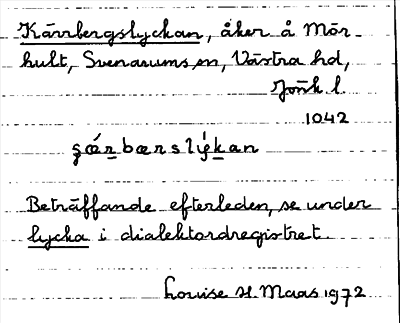 Kärrbergslyckan, åker å Mör-
hult, Svenarums sn, Västra hd,
Jönk l.
1042
şǽrbærslýkan
Beträffande efterleden, se under
lycka i dialektordregistret.
Louise H. Maas 1972